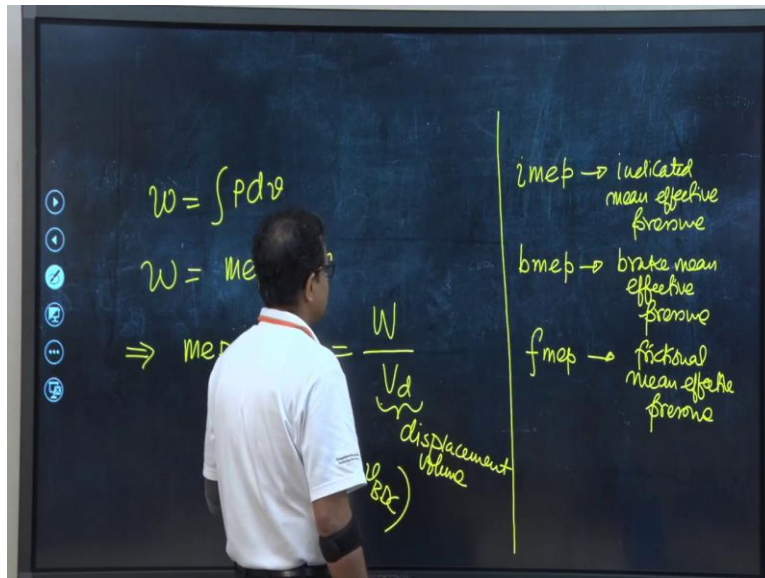 w = ∫ P dv
w = me
⇒ mep = W / V_d
displacement
volume
v_BDC)
imep → indicated
mean effective
pressure
bmep → brake mean
effective
pressure
fmep → frictional
mean effective
pressure